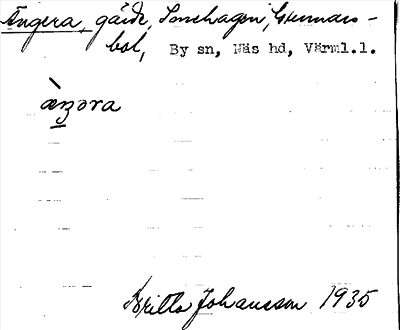 Ängera, gärde, Sonehagen, Gunnars-
bol, By sn, Näs hd, Värml.l.
àŋ̠əra
Britta Johansson 1935